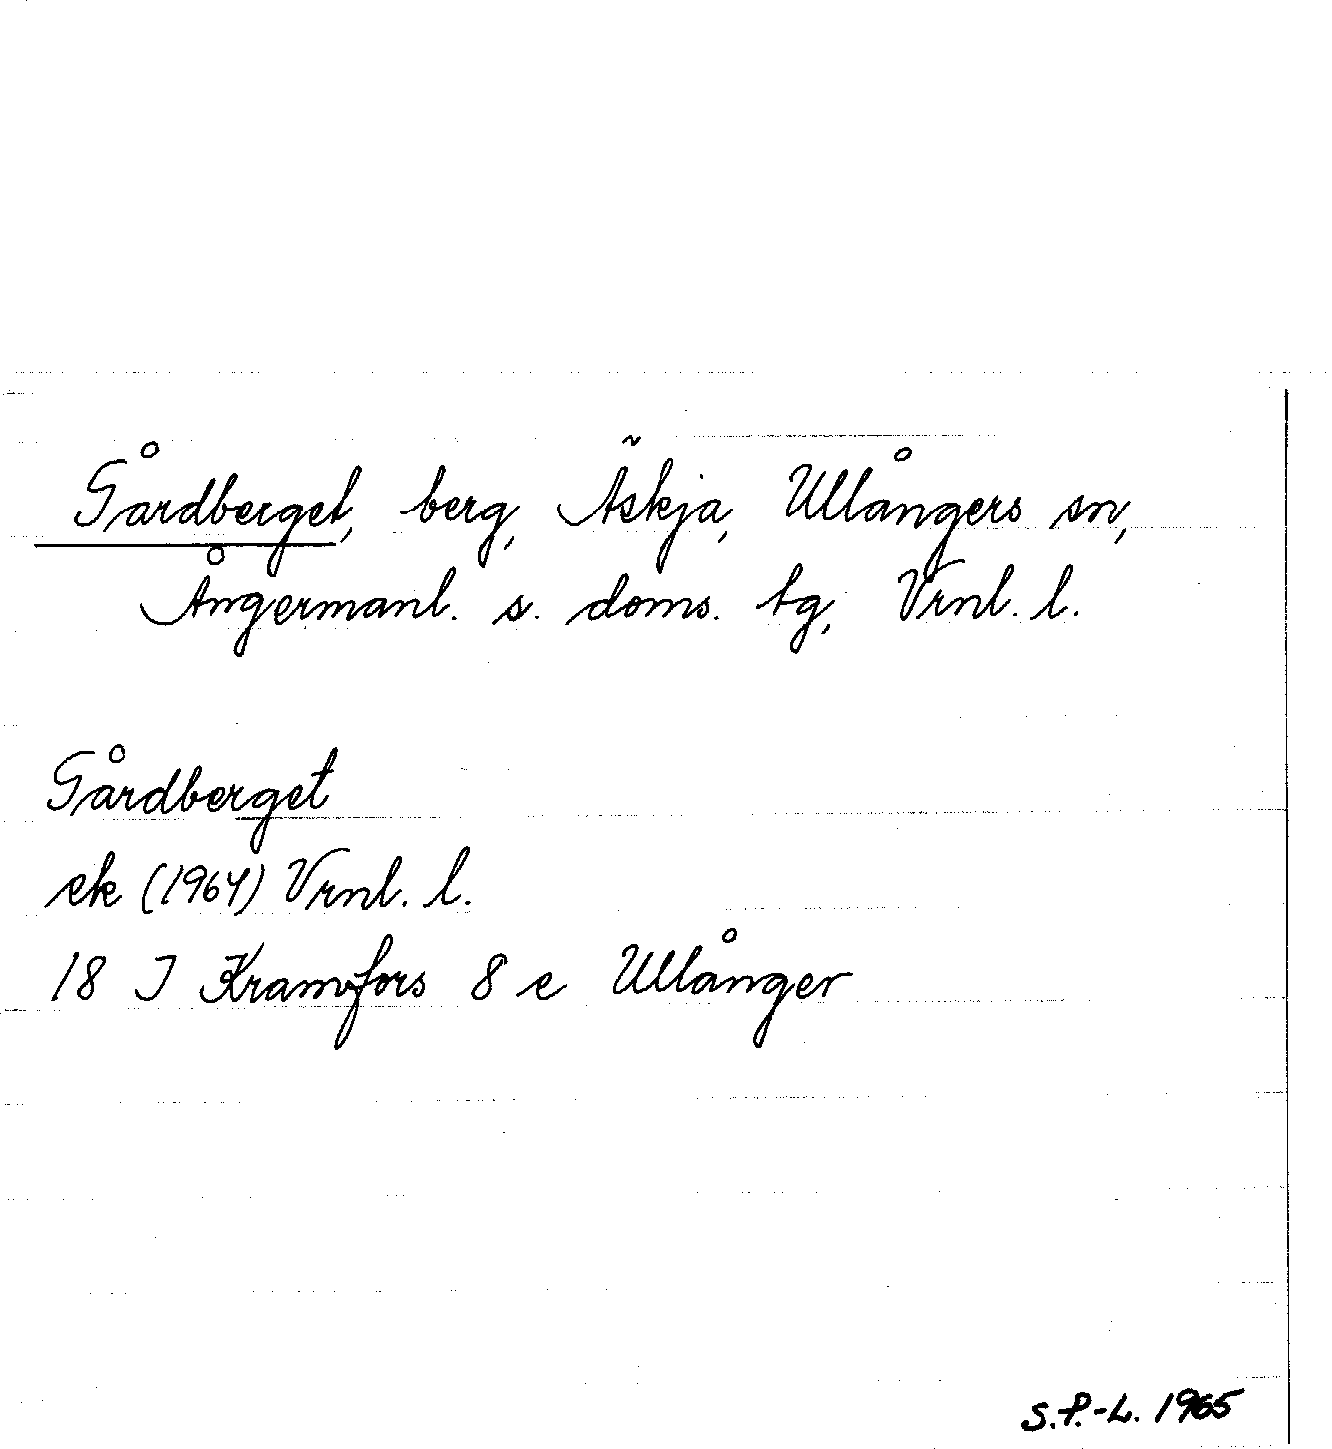 Gårdberget, berg, Äskja, Ullångers sn,
Ångermanl. s. doms. tg, Vrnl. l.
Gårdberget
ek (1964) Vrnl. l.
18 J Kramfors 8 e Ullånger
S.P.-L. 1965